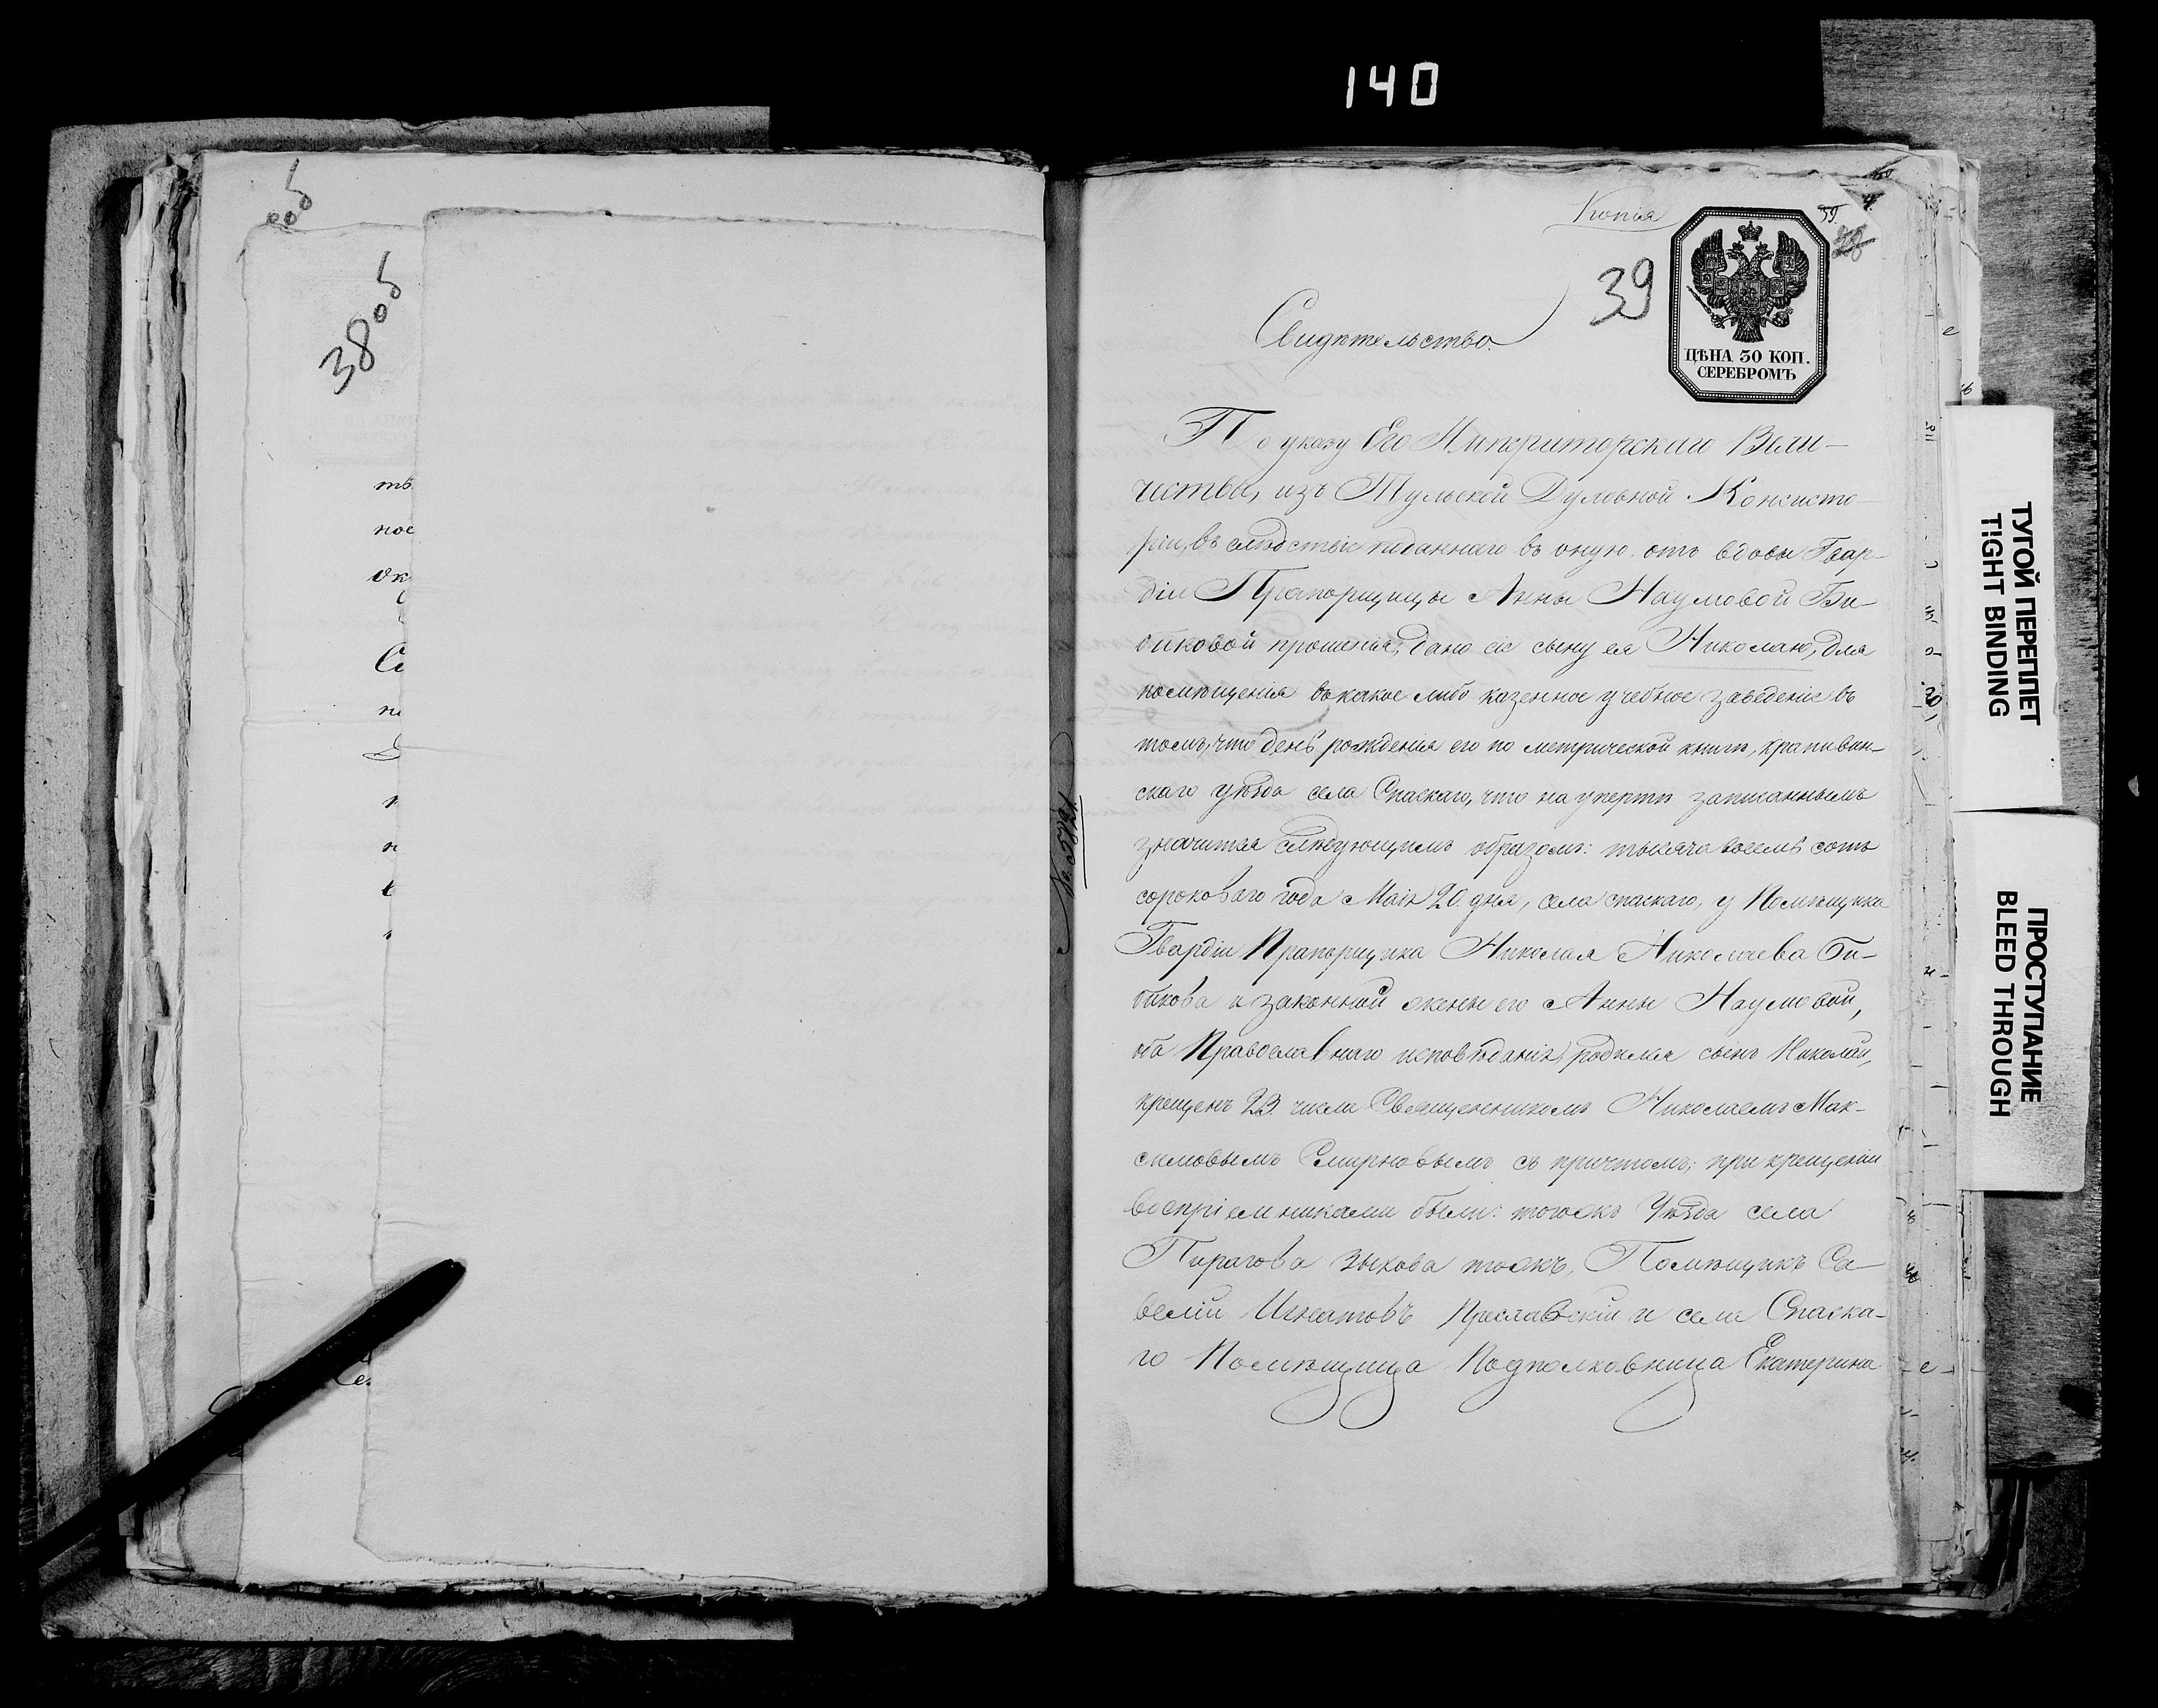 140
об
38 об
тв
ное
ок
Се
Копія
39
59.
ЦѢНА 30 КОП.
СЕРЕБРОМЪ
Свидѣтельство.
По указу Его Императорскаго Вели-
чества, изъ Тульской Духовной Консисто-
ріи, въ слѣдствіе поданнаго въ оную отъ вдовы Гвар-
діи Прапорщицы Анны Наумовой Би-
биковой прошенія, дано сіе сыну ея Николаю, для
помѣщенія въ какое либо казенное учебное заведеніе въ
томъ, что день рожденія его по метрической книгѣ, крапивен-
скаго уѣзда села Спаскаго, что на уперти записаннымъ
значится слѣдующимъ образомъ: тысяча восемь сотъ
сороковаго года Маія 20. дня, села спаскаго, у Помѣщика
Гвардіи Прапорщика Николая Николаева Би-
бикова и законной жены его Анны Наумовой,
оба Православнаго исповѣданія) родился сынъ Николай,
крещенъ 23. числа Священникомъ Николаемъ Мак-
симовымъ Смирновымъ съ причтомъ; при крещеніи
воспріемниками были: тогожъ Уѣзда села
Пирагова Зыкова тожъ, Помѣщикъ Са-
велій Игнатовъ Преславскій и села Спаска-
го Помѣщица Подполковница Екатерина
ТУГОЙ ПЕРЕПЛЕТ
TIGHT BINDING
ПРОСТУПАНИЕ
BLEED THROUGH